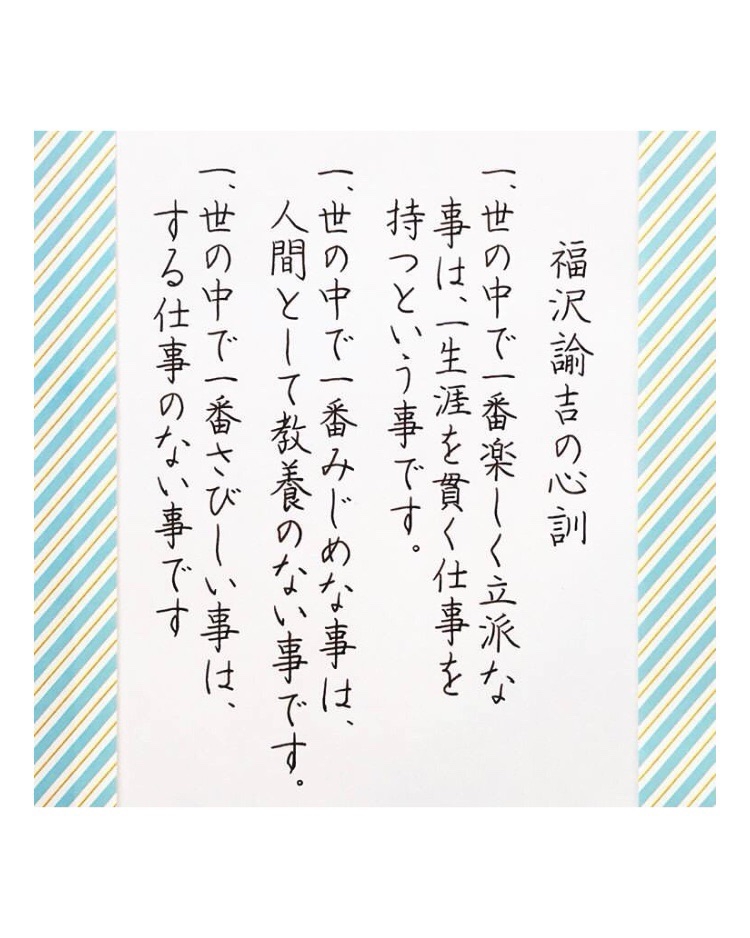 福沢諭吉の心訓
一、世の中で一番楽しく立派な
事は、一生涯を貫く仕事を
持つという事です。
一、世の中で一番みじめな事は、
人間として教養のない事です。
一、世の中で一番さびしい事は、
する仕事のない事です